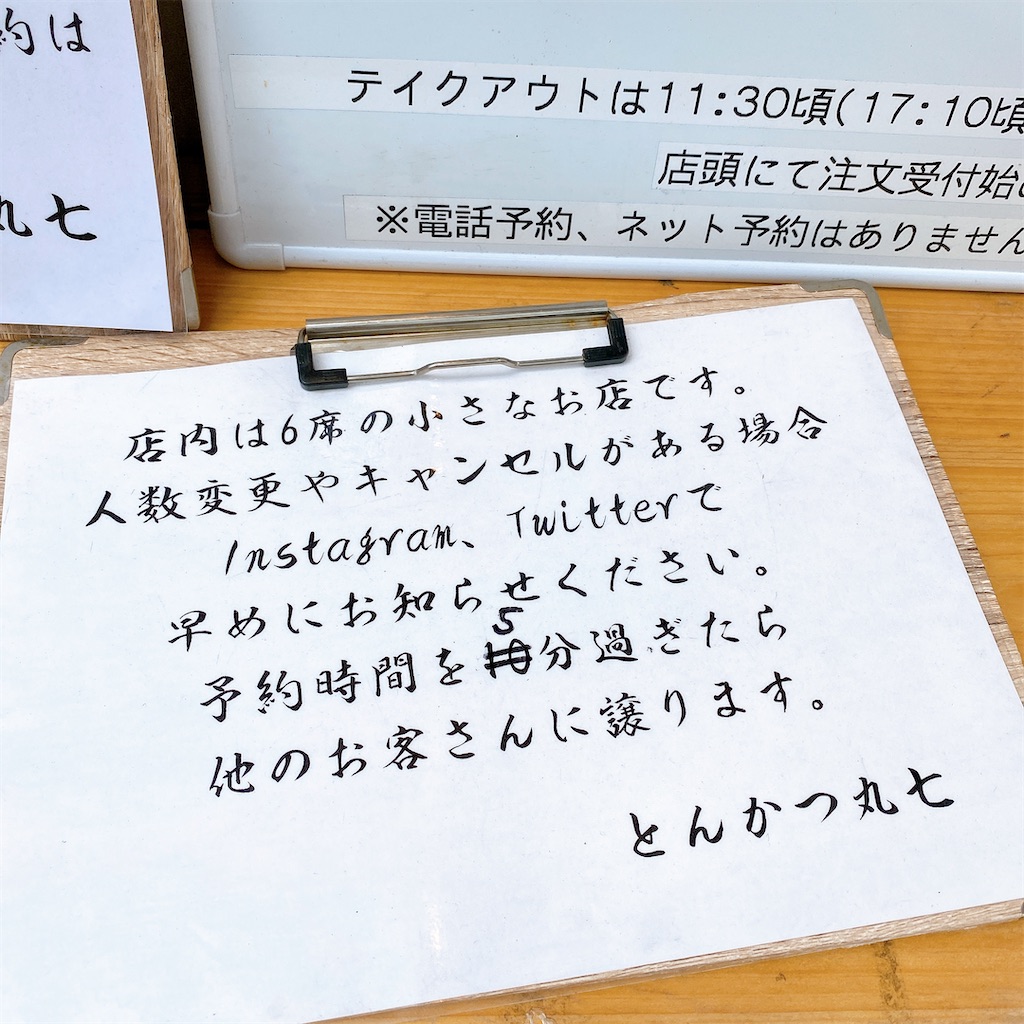 約は
丸七
テイクアウトは11:30頃(17:10頃
店頭にて注文受付始
※電話予約、ネット予約はありません
店内は6席の小さなお店です。
人数変更やキャンセルがある場合
Instagram、Twitterで
早めにお知らせください。
予約時間を5分過ぎたら
他のお客さんに譲ります。
とんかつ丸七